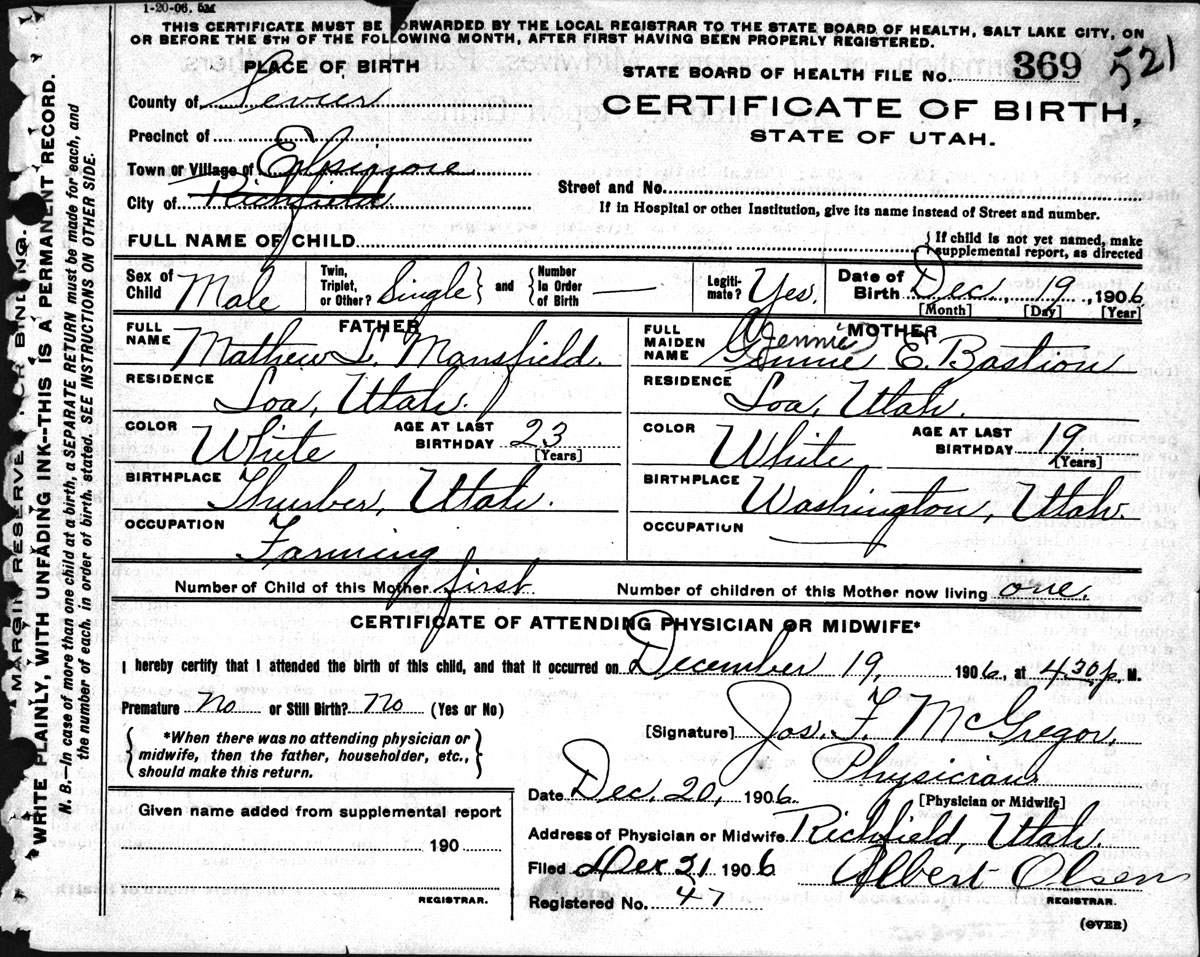 1-20-06. 5M
THIS CERTIFICATE MUST BE FORWARDED BY THE LOCAL REGISTRAR TO THE STATE BOARD OF HEALTH, SALT LAKE CITY, ON
OR BEFORE THE 5TH OF THE FOLLOWING MONTH, AFTER FIRST HAVING BEEN PROPERLY REGISTERED.
PLACE OF BIRTH
STATE BOARD OF HEALTH FILE No. 369 521
County of Sevier
CERTIFICATE OF BIRTH,
STATE OF UTAH.
Precinct of
Town or Village of Elsinore
City of Richfield
Street and No.
If in Hospital or other Institution, give its name instead of Street and number.
FULL NAME OF CHILD
{ If child is not yet named, make
supplemental report, as directed
Sex of Child Male
Twin, Triplet, or Other? Single } and { Number In Order of Birth —
Legitimate? Yes.
Date of Birth Dec., 19., 1906
[Month] [Day] [Year]
FATHER
FULL NAME Mathew L. Mansfield.
MOTHER
FULL MAIDEN NAME Jennie
Gennie E. Bastion
RESIDENCE Loa, Utah.
RESIDENCE Loa, Utah.
COLOR White AGE AT LAST BIRTHDAY 23 [Years]
COLOR White AGE AT LAST BIRTHDAY 19. [Years]
BIRTHPLACE Thurber, Utah.
BIRTHPLACE Washington, Utah.
OCCUPATION Farming
OCCUPATION —
Number of Child of this Mother first. Number of children of this Mother now living one.
CERTIFICATE OF ATTENDING PHYSICIAN OR MIDWIFE*
I hereby certify that I attended the birth of this child, and that it occurred on December 19, 1906, at 4.30 p. M.
Premature No or Still Birth? No (Yes or No)
[Signature] Jos. F. McGregor,
{ *When there was no attending physician or
midwife, then the father, householder, etc.,
should make this return. }
Physician.
[Physician or Midwife]
Date Dec. 20, 1906.
Given name added from supplemental report
190
REGISTRAR.
Address of Physician or Midwife Richfield, Utah.
Filed Dec 21 1906 Albert Olsen
REGISTRAR.
Registered No. 47
(OVER)
MARGIN RESERVED FOR BINDING.
WRITE PLAINLY, WITH UNFADING INK--THIS IS A PERMANENT RECORD.
N. B.—In case of more than one child at a birth, a SEPARATE RETURN must be made for each, and
the number of each, in order of birth, stated. SEE INSTRUCTIONS ON OTHER SIDE.